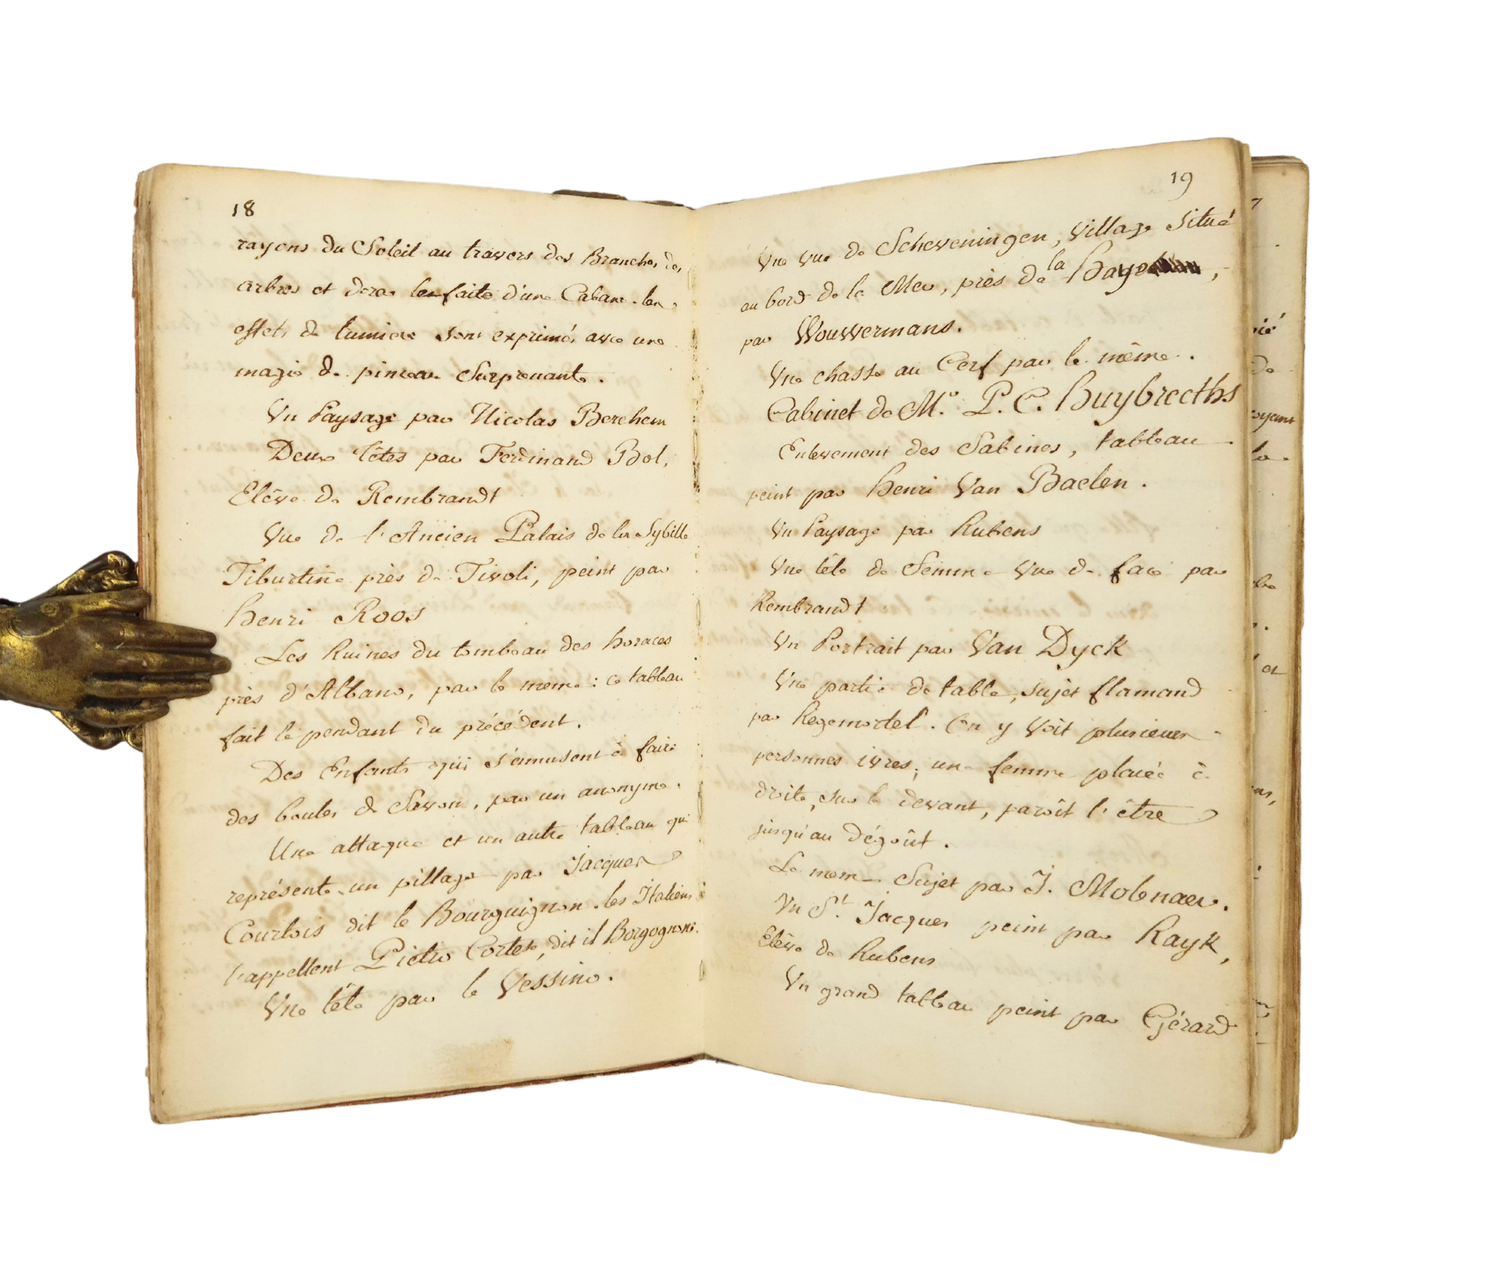 18
rayons du Soleil au travers des Branches des
arbres et dans les faits d'une Cabane. les
effets de lumiere sont exprimés avec une
magie de pinceau Surprenante.
Un Paysage par Nicolas Berchem
Deux têtes par Ferdinand Bol,
Elève de Rembrandt
Vue de l'Ancien Palais de la Sybille
Tiburtine près de Tivoli, peint par
henri Roos
Les Ruines du tombeau des horaces
près d'Albano, par le meme : ce tableau
fait le pendant du précédent.
Des Enfants qui s'amusent à faire
des boules de Savon, par un anonyme.
Une attaque et un autre tableau qui
représente un pillage par Jacques
Courtois dit le Bourguignon. les Italiens
l'appellent Pietro Cortese, dit il Borgognone.
Une tête par le Vessino.
19
Une vue de Scheveningen, Village Situé
au bord de la Mer, près de la haye,
par Wouwermans.
Une chasse au Cerf par le même.
Cabinet de Mr. P. C. huybrecths
Enlevement des Sabines, tableau
peint par henri Van Baelen.
Un Paysage par Rubens
Une tête de femme vue de face par
Rembrandt
Un Portrait par Van Dyck
Une partie de table, sujet flamand
par Regemortel. On y voit plusieurs
personnes ivres; une femme placée à
droite, sur le devant, paroît l'être
jusqu'au dégoût.
Le meme Sujet par J. Molenaer.
Un St. Jacques peint par Rayk,
Elève de Rubens
Un grand tableau peint par Gérard